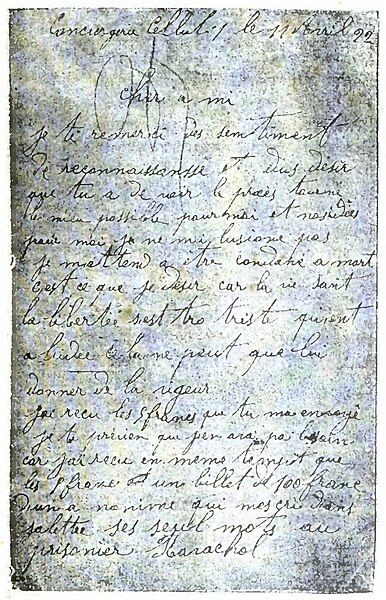 Conciergerie Cellul 1 le 11 Avril 92
Cher a mi
je te remersi des semtiment
de reconnaissansse et dus desir
que tu a de voir le proces tourné
le mieu possible pour moi et nos idées
pour moi je ne mi lusione pas
je mattend a etre condané a mort
cest ce que je desir car la vie sant
la libertée sest tro triste quent
a lidée cela ne peut que lui
donner de la vigeur
jai recu les 5 francs que tu ma envoyé
je te previen que jen avai pas besoin
car jai recu en meme temps que
les 5 franc un billet de 100 franc
dun a nonime qui mescri dans
sa lettre ses seul mots au
prisonier Ravachol